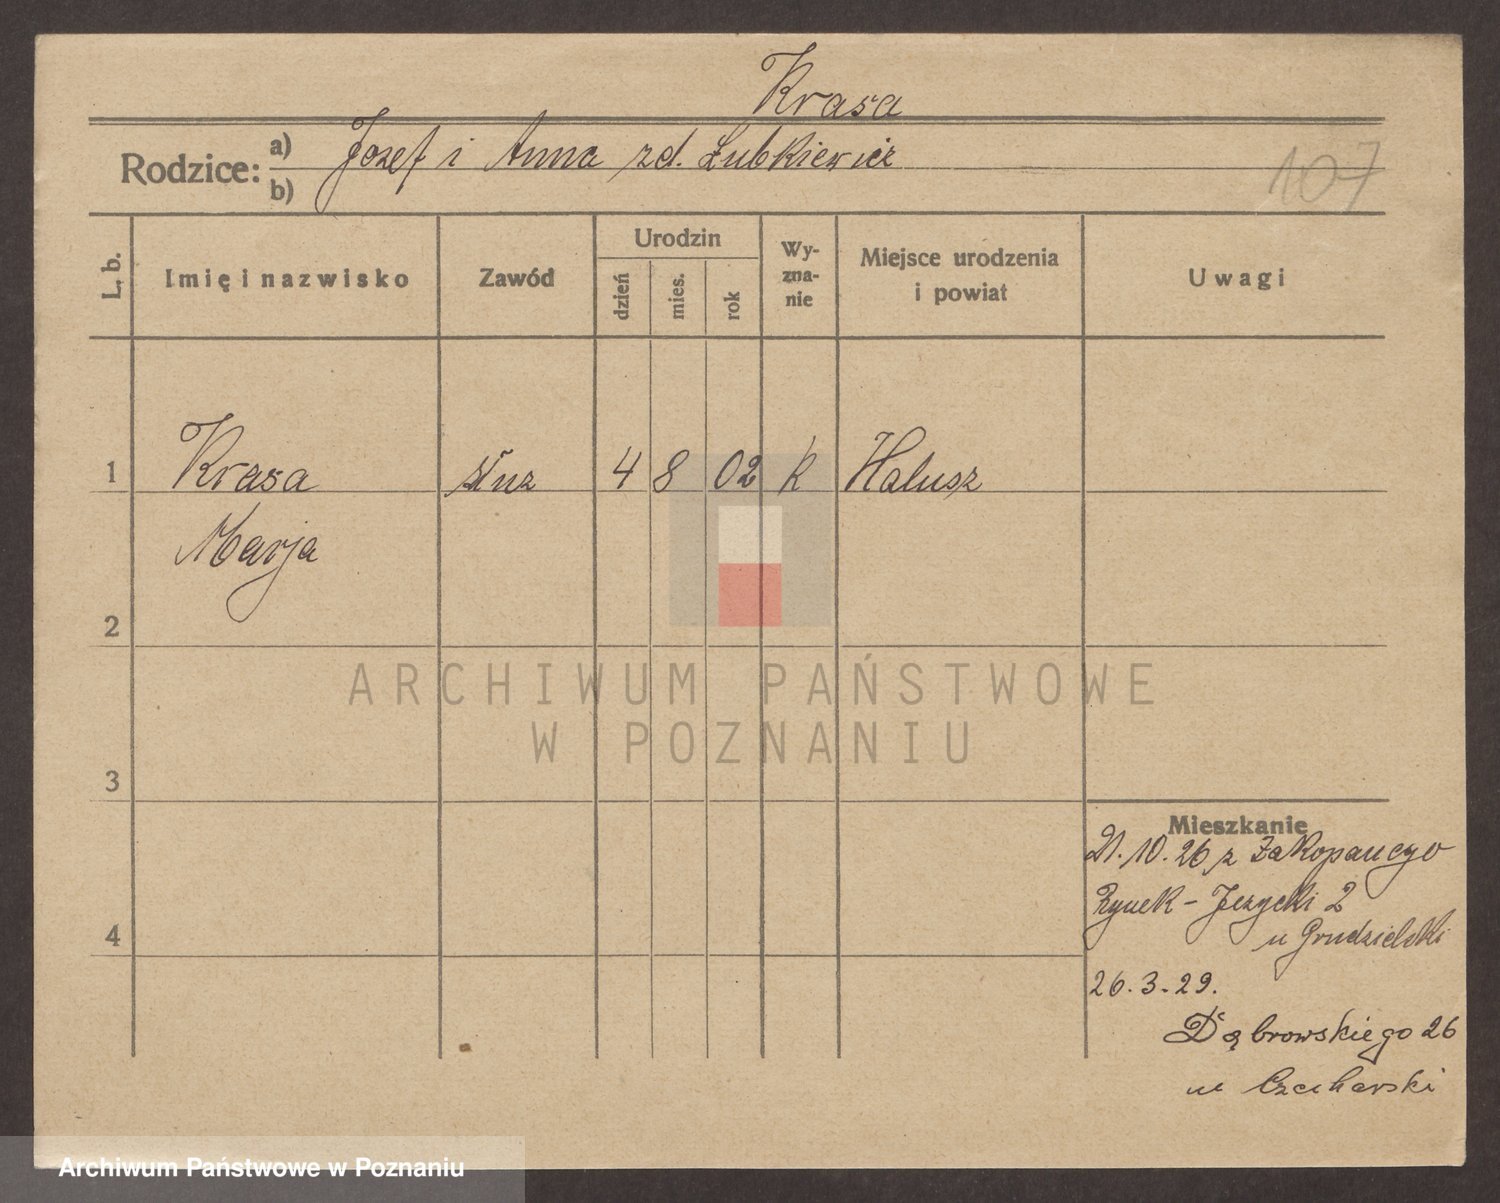 Krasa
Rodzice: a) Jozef i Anna zd. Łubkiewicz
b)
107
L. b.
Imię i nazwisko
Zawód
Urodzin
dzień
mies.
rok
Wy-
zna-
nie
Miejsce urodzenia
i powiat
Uwagi
1 Krasa słuz 4 8 02 k Halusz
Marja
2
3
4
Mieszkanie
21. 10. 26 z Zakopanego
Rynek - Jezycki 2
u Grudzielski
26. 3. 29.
Dąbrowskiego 26
u Czecharski
ARCHIWUM PAŃSTWOWE
W POZNANIU
Archiwum Państwowe w Poznaniu